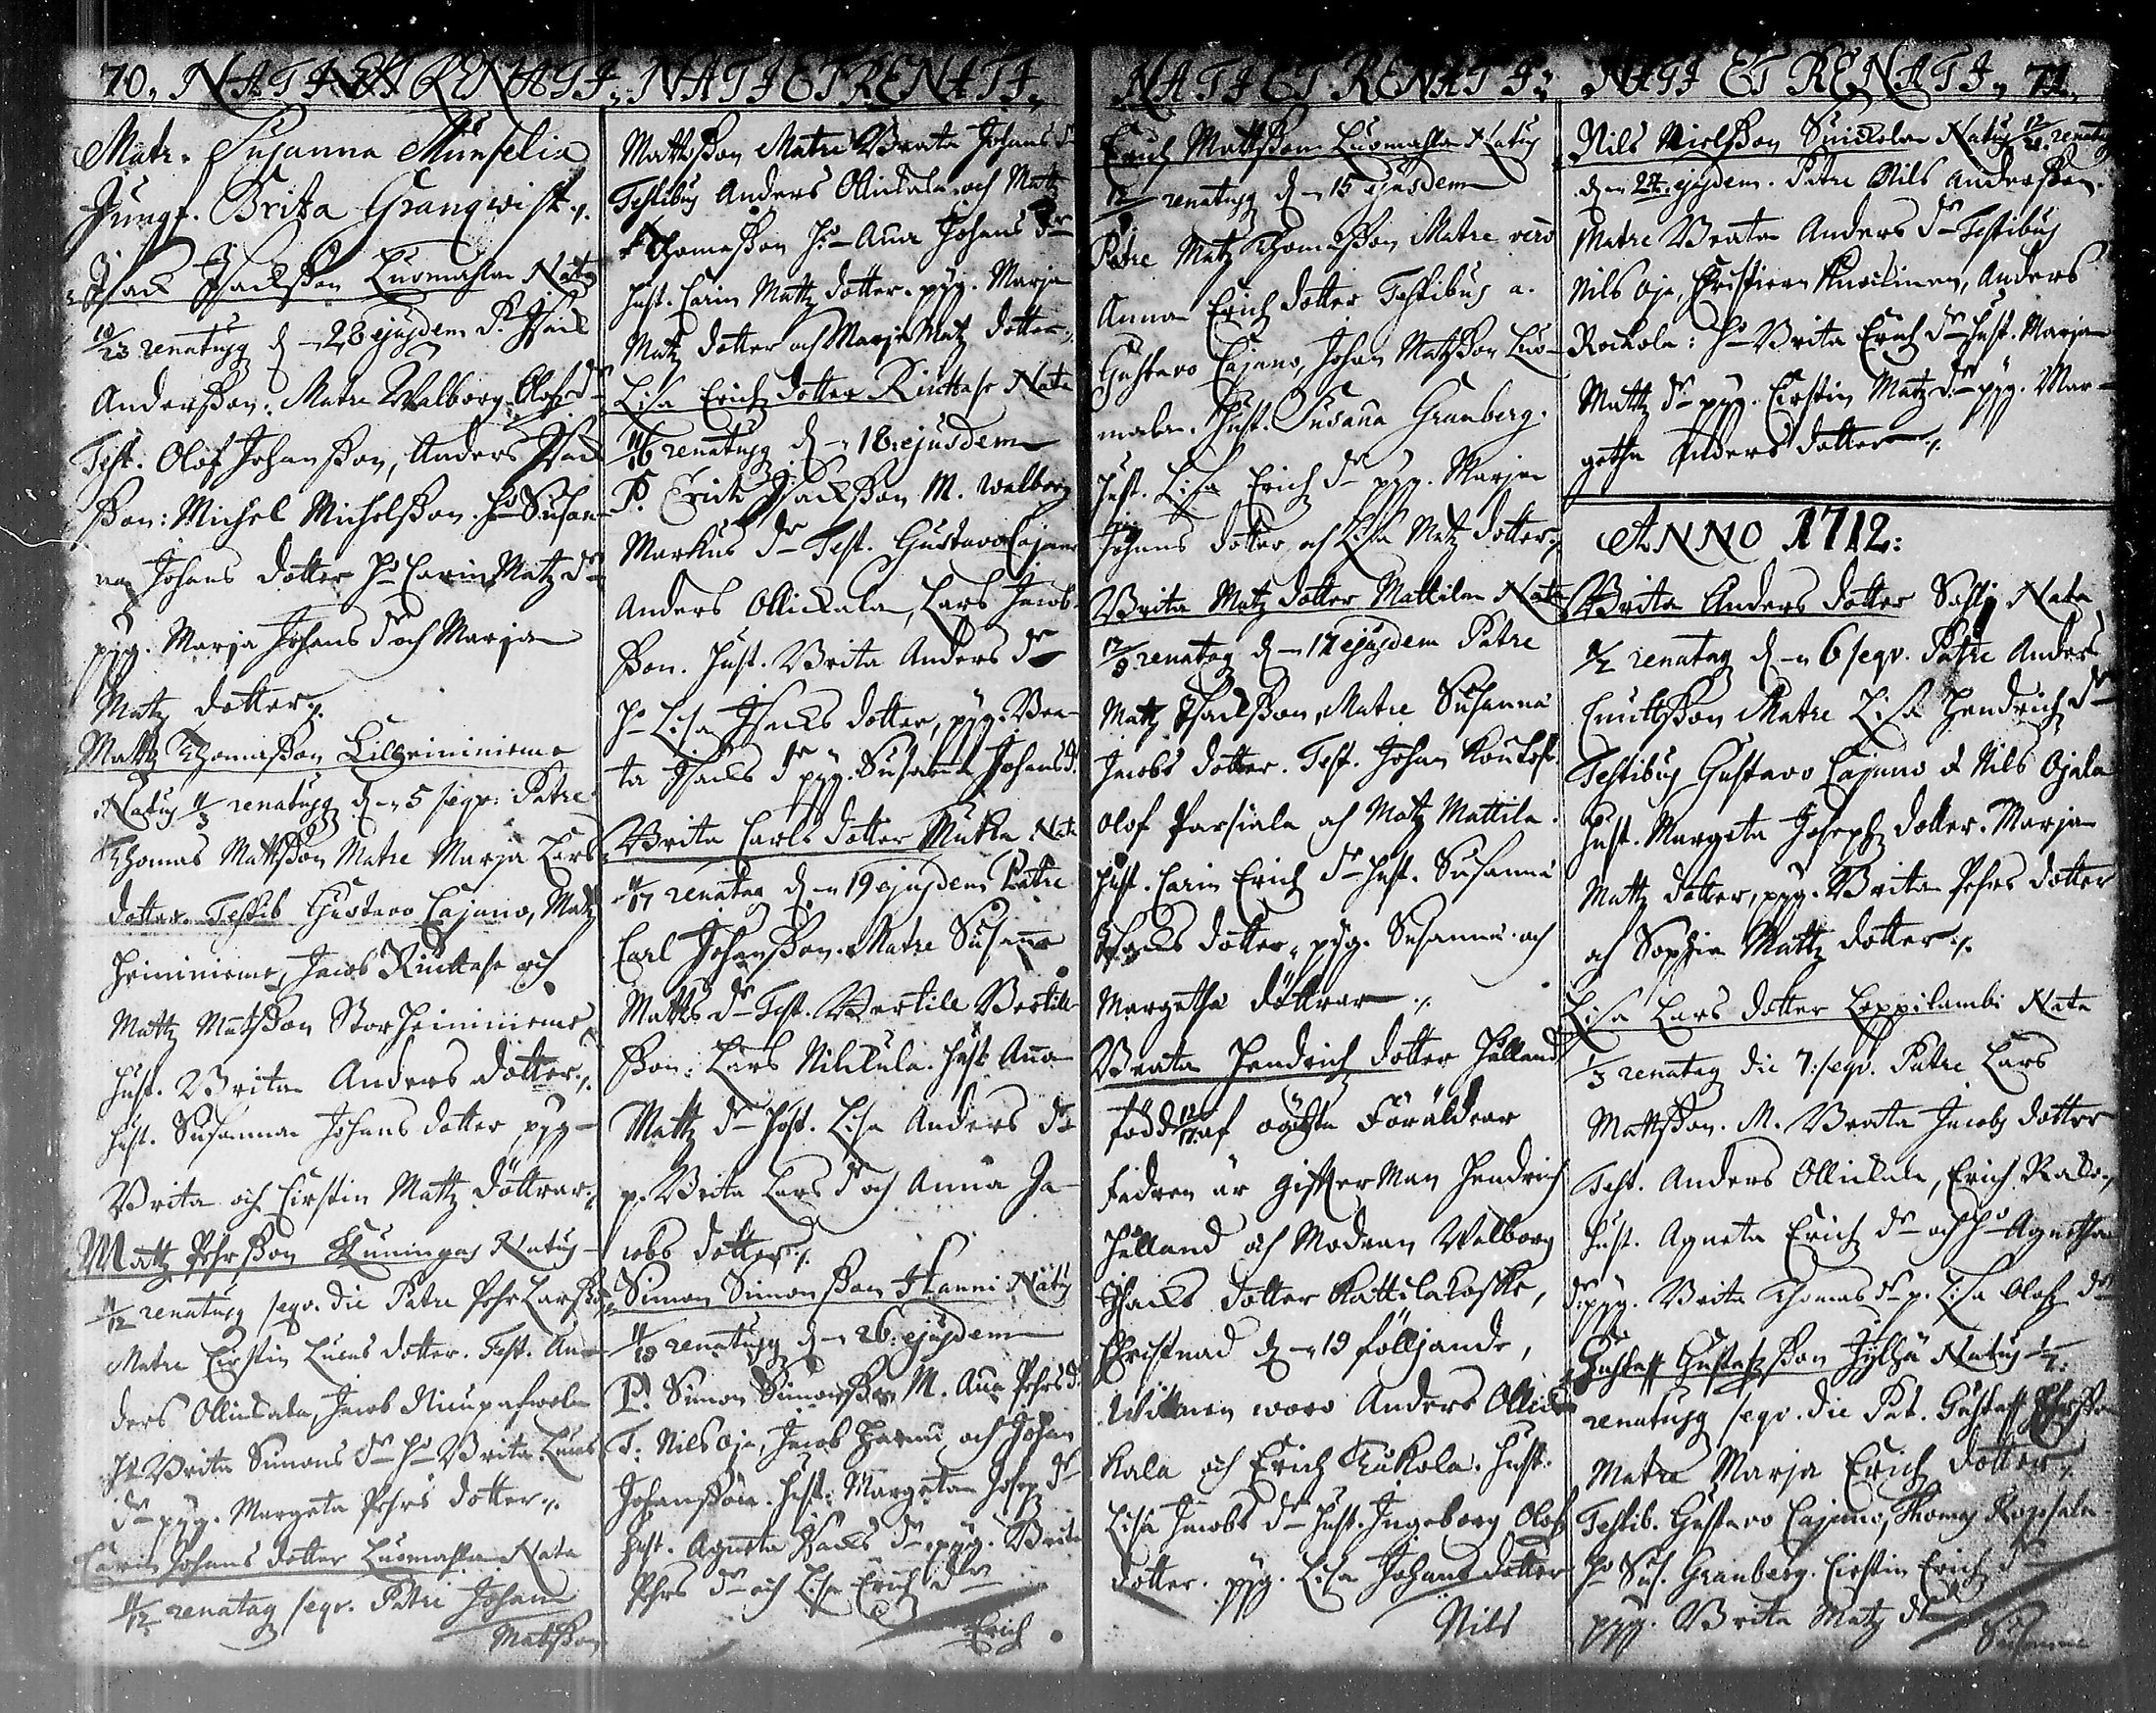 70. NATI ET RENATI. NATI ET RENATI.
Matr. Susanna Munselia
Jungf. Brita Granqwist.
Isaac Isacksson Luomahla Natus
10/23 renatusq d. 28 ejusdem P. Isac
Andersson. Matre Walborg Olofs dr
Test. Olof Johansson, Anders Isac
sson: Michel Michelsson. H. Susan
na Johans dotter H. Carin Matz dr
pyg. Marja Johans dr och Marja
Matz dotter.
Mattz Thomasson Lillheinieme
Natus 11/3 renatusq d. 5 seqv. Patre
Thomas Mattsson Matre Marja Lars
dotter. Testib Gustavo Cajano, Matz
Heinieme, Jacob Rinttase och
Mattz Matsson Storheinieme
Hust. Brita Anders dotter.
Hust. Susanna Johans dotter pyg
Brita och Cirstin Mattz döttrar.
Matz Pehrsson Kuningas Natus
11/12 renatusq seqv. die Patre Pehr Larsson
Matre Cirstin Lucas dotter. Test. An
ders Ollickala, Jacob
H. Brita Simons dr H. Brita Lucas
dr pyg. Margeta Pehrs dotter.
Carin Johans dotter Luomahla Nata
11/12 renataq seqv. Patre Johan
Matsson
Mattsson Matre Beata Johans dr
Testibus Anders Ollickala och Mattz
Thomasson H. Anna Johans dr
Hust. Carin Mattz dotter. pyg. Marja
Matz dotter och Marja Matz dotter.
Lisa Erich dotter Rinttase Nata
11/16 renatusq d. 18 ejusdem
P. Erich Isacksson M. Walborg
Markus dr Test. Gustavo Cajano
Anders Ollickala, Lars Jacob
sson. Hust. Brita Anders dr
H. Lisa Isacks dotter, pyg. Bea
ta Isacks dr pyg. Susanna Johans dr
Brita Carls dotter Mukka Nata
11/17 renataq d. 19 ejusdem Patre
Carl Johansson. Matre Susanna
Matts dr Test. Bertill Bertill
sson: Lars Nikkula. Hust. Anna
Mattz dr Hust. Lisa Anders dr
p. Brita Lars dr och Anna Ja
cobs dotter.
Simon Simonsson Hanni Natus
11/19 renatusq d. 26 ejusdem
P. Simon Simonsson M. Anna Pehrs dr
T. Nils Oja, Jacob Hannu och Johan
Johansson. Hust. Margeta Josep dr
Hust. Agneta Isacks dr pyg. Brita
Pehrs dr och Lisa Erich dr
Erich
NATI ET RENATI. NATI ET RENATI. 71.
Erich Mattsson Luomahla Natus
12/ renatusq d. 15 ejusdem
Patre Matz Thomasson Matre vero
Anna Erich dotter Testibus a.
Gustavo Cajano, Johan Matsson Luo
mala. Hust. Susanna Granberg.
Hust. Lisa Erich dr pyg. Marja
Johans dotter och Lisa Matz dotter.
Brita Matz dotter Mattila Nata
12/9 renataq d. 12 ejusdem Patre
Mattz Isacksson, Matre Susanna
Jacobs dotter. Test. Johan
Olof Parsiala och Matz Mattila.
Hust. Carin Erich dr Hust. Susanna
Isacks dotter, pyg. Susanna och
Margetha döttrar.
Beata Hendrich dotter Hälland
född 12/17 af oächta Föräldrar
Fadren är gifter Man Hendrich
Hälland och Modren Walborg
Isacks dotter Kattilakoske,
Christnad d. 19 följjande,
Wittnen woro Anders Ollic
kala och Erich Kukola. Hust.
Lisa Jacobs dr Hust. Ingeborg Olofs
dotter. pyg. Lisa Johans dotter
Nils
Nils Nielsson Natus 12/21 renatusq
d. 22 ejusdem. Patre Nils Andersson.
Matre Beata Anders dr Testibus
Nils Oja, Christiern, Anders
Rockola: H. Brita Erich dr Hust. Marja
Mattz dr pyg. Cirstin Matz dr pyg. Mar
getha Anders dotter.
ANNO 1712:
Brita Anders dotter Nata
1/2 renataq d. 6 seqv. Patre Anders
Matre Lisa Hendrich dr
Testibus Gustavo Cajano & Nils Ojala
Hust. Margeta Joseph dotter. Marja
Mattz dotter, pyg. Brita Pehrs dotter
och Sophia Mattz dotter.
Lisa Lars dotter Leppilambi Nata
1/3 renataq die 7. seqv. Patre Lars
Mattsson. M. Beata Jacobs dotter
Test. Anders Ollickala, Erich
Hust. Agneta Erich dr och H. Agnetha
dr pyg. Brita Thomas dr p. Lisa Olofs dr
Gustaff Gustafsson Jylhä Natus 1/7.
renatusq seqv. die Pat. Gustaff
Matre Marja Erich dotter.
Testib. Gustavo Cajano, Thomas
H. Sus. Granberg. Cirstin Erich dr
pyg. Brita Matz dr
Susanna